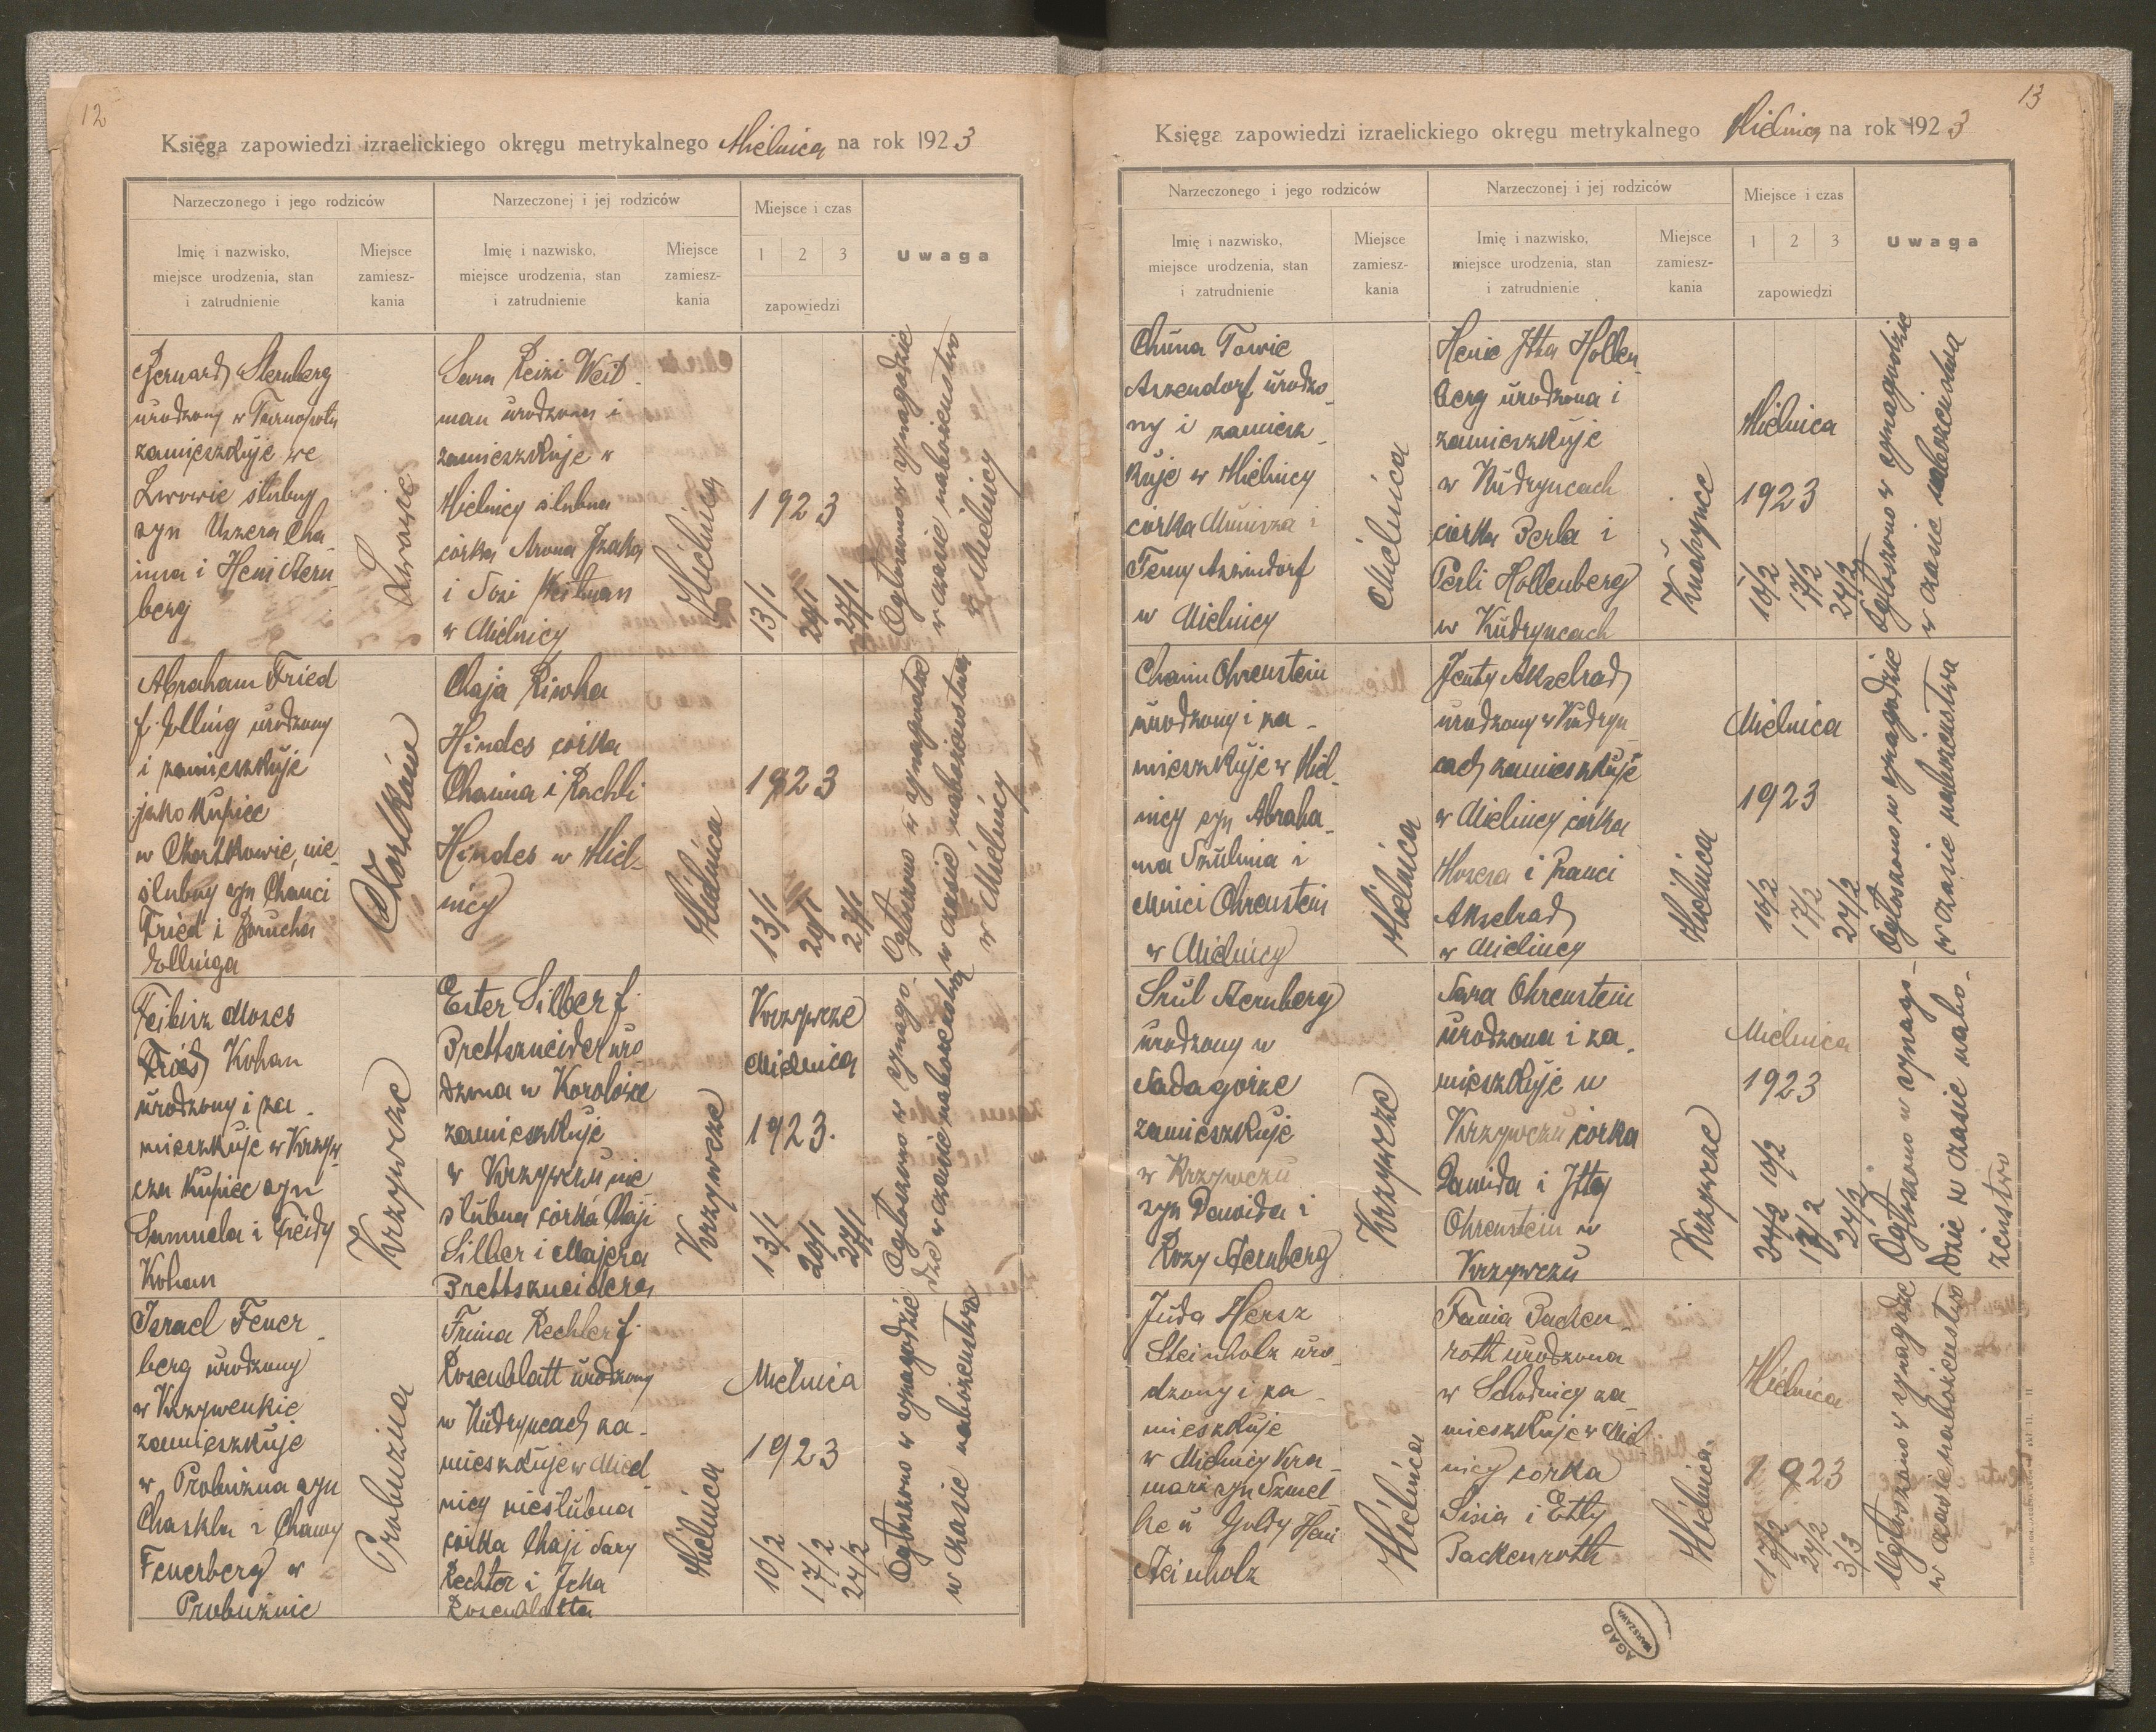 12
Księga zapowiedzi izraelickiego okręgu metrykalnego Mielnica na rok 1923
Narzeczonego i jego rodziców
Narzeczonej i jej rodziców
Miejsce i czas
Uwaga
Imię i nazwisko,
miejsce urodzenia, stan
i zatrudnienie
Miejsce
zamiesz-
kania
Imię i nazwisko,
miejsce urodzenia, stan
i zatrudnienie
Miejsce
zamiesz-
kania
1 2 3
zapowiedzi
Bernard Sternberg
urodzony w Tarnopolu
zamieszkuje we
Lwowie ślubny
syn Uszera Cha-
ima i Heni Stern-
berg
Lwowie
Sara Reizi Weit-
man urodzona i
zamieszkuje w
Mielnicy ślubna
córka Arona Izaka
i Sosi Weitman
w Mielnicy
Mielnica
1923
13/1
20/1
27/1
Ogłoszono w synagodze
w czasie nabożeństwa
w Mielnicy
Abraham Fried
f. Elling urodzony
i zamieszkuje
jako kupiec
w Czortkowie, nie-
ślubny syn Chanci
Fried i Borucha
Ellinga
Czortków
Chaja Riwka
Hindes córka
Chaima i Rachli
Hindes w Miel-
nicy
Mielnica
1923
13/1
20/1
27/1
Ogłoszono w synagodze
w czasie nabożeństwa
w Mielnicy
Feibisz Mozes
Fried Kohan
urodzony i za-
mieszkuje w Krzyw-
czu kupiec syn
Samuela i Freidy
Kohan
Krzywcze
Ester Silber f.
Brettszneider uro-
dzona w Korolówce
zamieszkuje
w Krzywczu nie
ślubna córka Chaji
Silber i Majera
Brettszneidera
Krzywcze
Krzywcze
Mielnica
1923.
13/1
20/1
27/1
Ogłoszono w synago-
dze w czasie nabożeństwa
Israel Feuer-
berg urodzony
w Krzywenkie
zamieszkuje
w Probużna syn
Chaskla i Chawy
Feuerberg w
Probużnie
Probużna
Fruma Rechter f.
Rosenblatt urodzony
w Kudryncach za-
mieszkuje w Miel
nicy nieślubna
córka Chaji Sary
Rechter i Icka
Rosenblatta
Mielnica
Mielnica
1923
10/2
17/2
24/2
Ogłoszono w synagodze
w czasie nabożeństwa
13
Księga zapowiedzi izraelickiego okręgu metrykalnego Mielnica na rok 1923
Narzeczonego i jego rodziców
Narzeczonej i jej rodziców
Miejsce i czas
Uwaga
Imię i nazwisko,
miejsce urodzenia, stan
i zatrudnienie
Miejsce
zamiesz-
kania
Imię i nazwisko,
miejsce urodzenia, stan
i zatrudnienie
Miejsce
zamiesz-
kania
1 2 3
zapowiedzi
Chuna Towie
Aszendorf urodzo-
ny i zamiesz-
kuje w Mielnicy
córka Munisza i
Femy Aszendorf
w Mielnicy
Mielnica
Henie Itta Hollen-
berg urodzona i
zamieszkuje
w Kudryncach
córka Berla i
Perli Hollenberg
w Kudryncach
Kudrynce
Mielnica
1923
10/2
17/2
24/2
Ogłoszono w synagodze
w czasie nabożeństwa
Chaim Ohrenstein
urodzony i za-
mieszkuje w Miel-
nicy syn Abraha-
ma Szulima i
Minci Ohrenstein
w Mielnicy
Mielnica
Jenty Akselrad
urodzony w Kudryn-
cach zamieszkuje
w Mielnicy córka
Mozesa i Pranci
Akselrad
w Mielnicy
Mielnica
Mielnica
1923
10/2
17/2
24/2
Ogłoszono w synagodze
w czasie nabożeństwa
Srul Sternberg
urodzony w
Sadagórze
zamieszkuje
w Krzywczu
syn Dawida i
Rozy Sternberg
Krzywcze
Sara Ohrenstein
urodzona i za-
mieszkuje w
Krzywczu córka
Dawida i Itty
Ohrenstein w
Krzywczu
Krzywcze
Mielnica
1923
10/2
17/2
24/2
Ogłoszono w synago-
dze w czasie nabo-
żeństwa
Juda Hersz
Steinholz uro-
dzony i za-
mieszkuje
w Mielnicy kra-
marz syn Szmel-
ke u Goldy Heni
Steinholz
Mielnica
Fania Packen-
roth urodzona
w Schodnicy za-
mieszkuje w Miel-
nicy córka
Sisia i Etty
Packenroth
Mielnica
Mielnica
1923
17/2
24/2
3/3
Ogłoszono w synagodze
w czasie nabożeństwa
AGAD
WARSZAWA